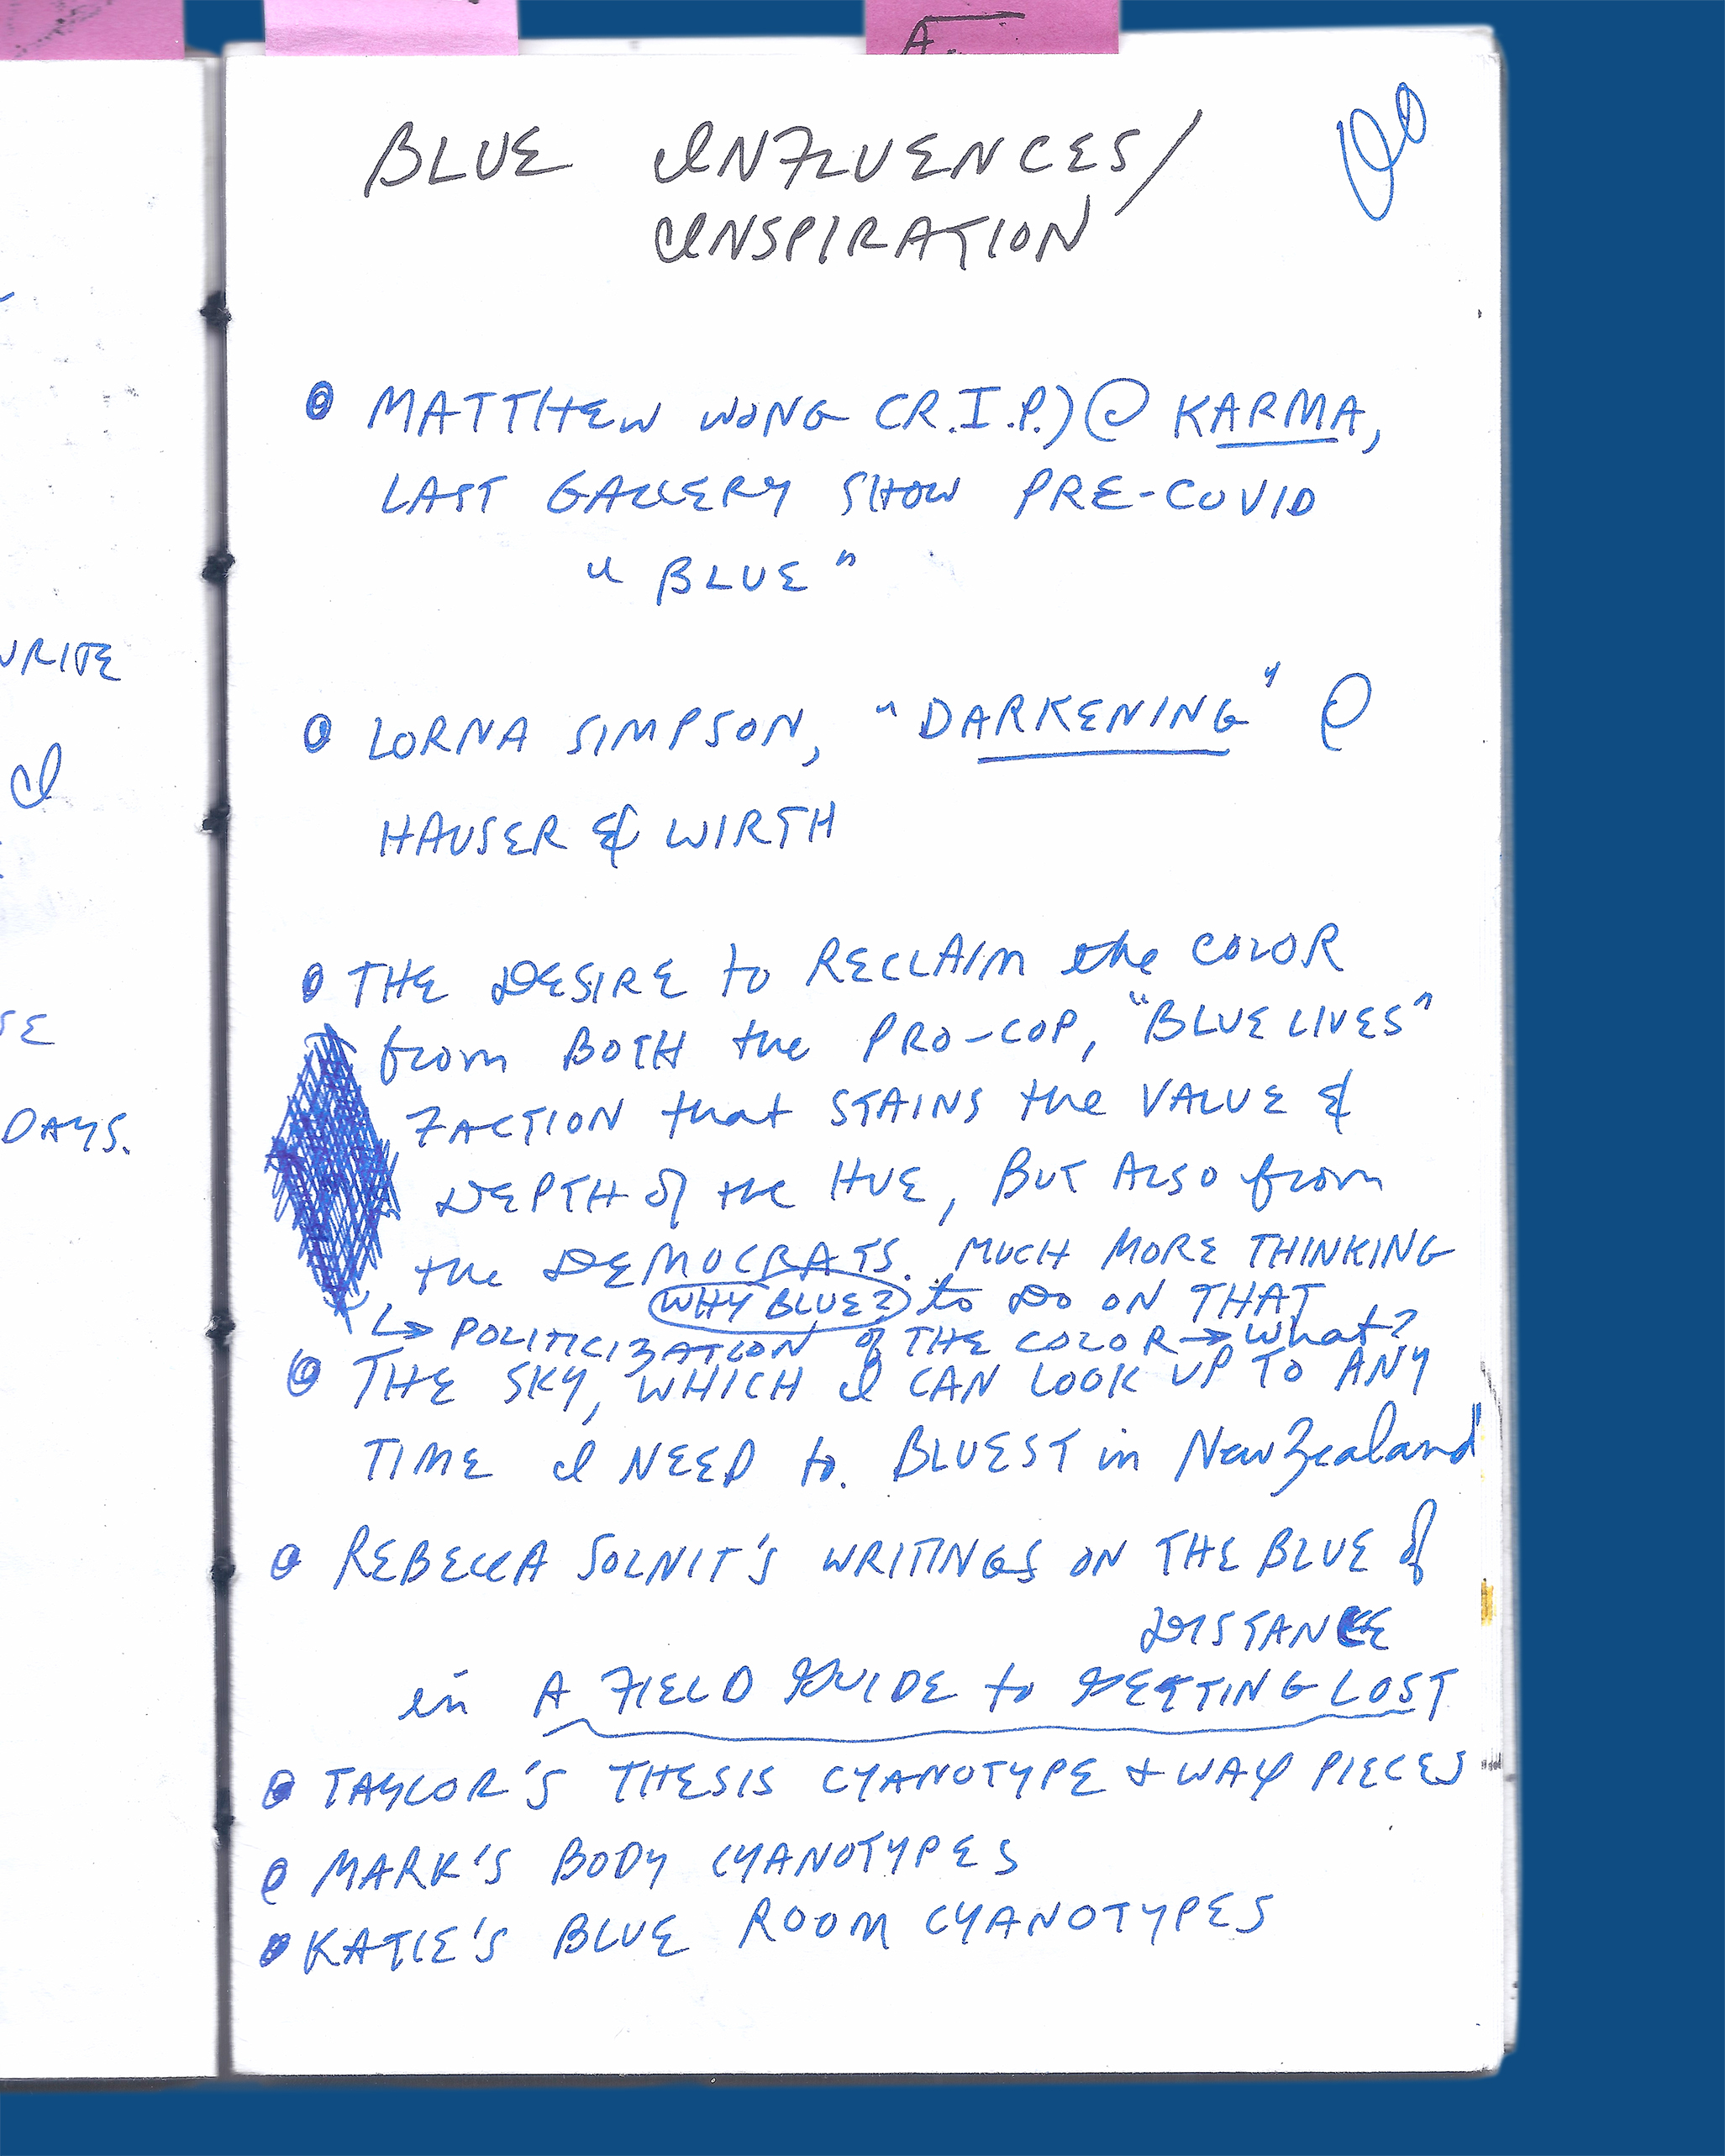 BLUE INFLUENCES/
INSPIRATION
MATTHEW WONG (R.I.P.) @ KARMA,
LAST GALLERY SHOW PRE-COVID
"BLUE"
LORNA SIMPSON, "DARKENING" @
HAUSER & WIRTH
THE DESIRE to RECLAIM the COLOR
from BOTH the PRO-COP, "BLUE LIVES"
FACTION that STAINS the VALUE &
DEPTH of the HUE, BUT ALSO from
the DEMOCRATS. MUCH MORE THINKING
WHY BLUE? to DO ON THAT
↳ POLITICIZATION of THE COLOR → what?
THE SKY, WHICH I CAN LOOK UP TO ANY
TIME I NEED to. BLUEST in New Zealand
REBECCA SOLNIT'S WRITINGS ON THE BLUE of
DISTANCE
in A FIELD GUIDE to GETTING LOST
TAYLOR'S THESIS CYANOTYPE + WAX PIECES
MARK'S BODY CYANOTYPES
KATIE'S BLUE ROOM CYANOTYPES
WRITE
I
SE
DAYS.
A